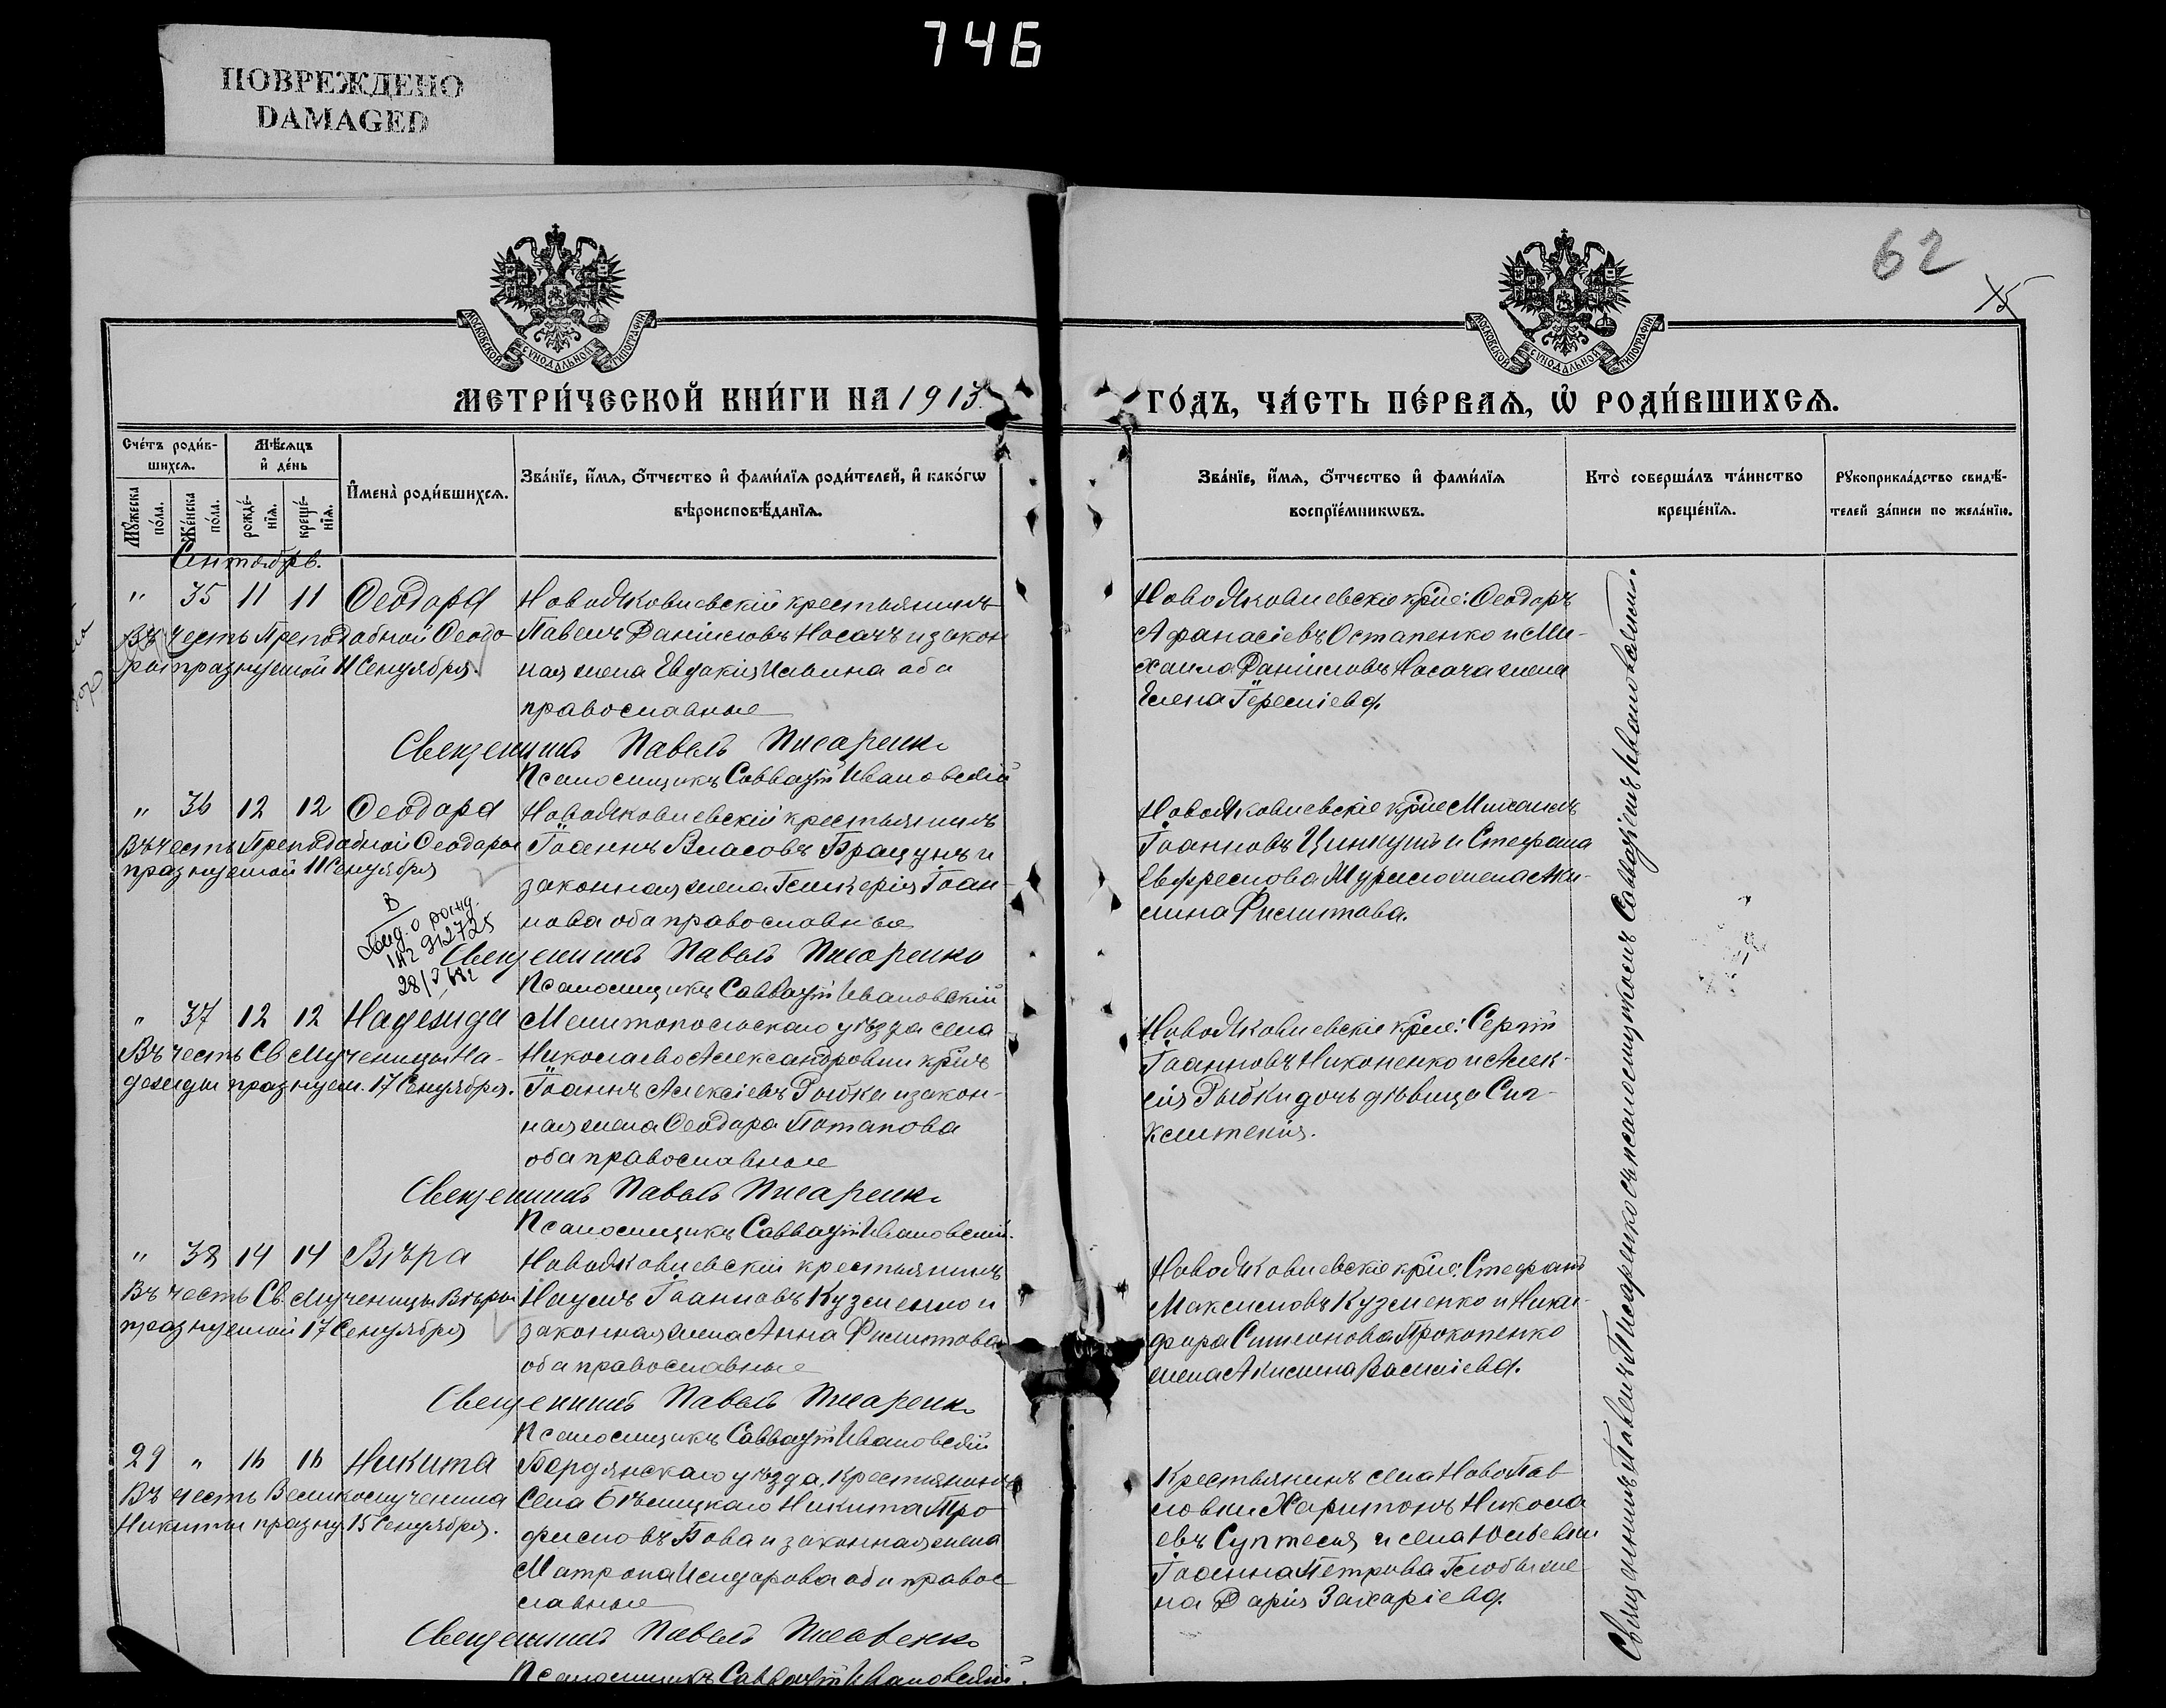 746
ПОВРЕЖДЕНО
DAMAGED
62
15
МОСКОВСКОЙ СѴНОДАЛЬНОЙ ТИПОГРАФІИ
МОСКОВСКОЙ СѴНОДАЛЬНОЙ ТИПОГРАФІИ
МЕТРИ́ЧЕСКОЙ КНИ́ГИ НА 1913
ГО́ДЪ, ЧА́СТЬ ПЕ́РВАѦ, Ѡ҆ РОДИ́ВШИХСѦ.
Сче́тъ роди́в-
шихсѧ.
Мѣ́сѧцъ
и҆ де́нь
Мꙋ́жеска по́ла.
Же́нска по́ла.
рожде́-
нїѧ.
креще́-
нїѧ.
И҆мена̀ роди́вшихсѧ.
Зва́нїе, и҆́мѧ, ѻ҆́тчество и҆ фами́лїѧ роди́телей, и҆ како́гѡ
вѣроисповѣ́данїѧ.
Зва́нїе, и҆́мѧ, ѻ҆́тчество и҆ фами́лїѧ
воспрїе́мникѡвъ.
Кто̀ соверша́лъ та́инство
креще́нїѧ.
Рꙋкоприкла́дство свидѣ́-
телей за́писи по жела́нїю.
Сентябрь.
" 35 11 11 Ѳеодора
Въ честь Преподобной Ѳеодо-
ры празнуемой 11 Сентября.
НовоЯковлевскій крестьянинъ
Павелъ Даніиловъ Носачъ и закон
ная жена Евдокія Ильина оба
православные
Священникъ Павелъ Писаренко
Псаломщикъ Савватій Ивановскій
НовоЯковлевскіе кр̃не: Ѳеодоръ
Аѳанасіевъ Остапенко и Ми-
хаила Даніиловъ Носача жена
Елена
" 36 12 12 Ѳеодора
Въ честь Преподобной Ѳеодоры
празнуемой 11 Сентября
В
Свид. о рожд.
912725
НовоЯковлевскій крестьянинъ
Іоаннъ Власовъ Брацунъ и
законная жена Гликерія Іоан-
нова оба православные
Священникъ Павелъ Писаренко
Псаломщикъ Савватій Ивановскій
НовоЯковлевскіе кр̃не Михаилъ
Іоанновъ и Стефана
жена Аки-
лина Филиппова.
" 37 12 12 Надежда
Въ честь Св. Мученицы На-
дежды празнуем. 17 Сентября.
Мелитопольскаго уѣзда села
Николаево Александровки кр̃нъ
Іоаннъ Алексіевъ Рыбка и закон-
ная жена Ѳеодора Потапова
оба православные
Священникъ Павелъ Писаренко
Псаломщикъ Савватій Ивановскій.
НовоЯковлевскіе кр̃не: Сергій
Іоанновъ Никоненко и Алек-
сія Рыбки дочь дѣвица Син-
клитикія.
" 38 14 14 Вѣра
Въ честь Св. Мученицы Вѣры
празнуемой 17 Сентября
НовоЯковлевскій крестьянинъ
Наумъ Іоанновъ Кузменко и
законная жена Анна Филиппова
оба православные
Священникъ Павелъ Писаренко
Псаломщикъ Савватій Ивановскій
НовоЯковлевскіе кр̃не: Стефанъ
Максимовъ Кузменко и Ники-
фора Симеонова Прокопенко
жена Акилина Василіева.
29 " 16 16 Никита
Въ честь Великомученика
Никиты празну. 15 Сентября.
Бердянскаго уѣзда, крестьянинъ
Села Бѣлицкаго Никита Тро
фимовъ Бова и законная жена
Матрона Исидорова оба правос
лавные
Священникъ Павелъ Писаренко
Псаломщикъ Савватій Ивановскій.
Крестьянинъ села НовоПав
ловки Харитонъ Никола
евъ и села Юльевки
Іоанна Петрова же
на Дарія Захаріева.
Священникъ Павелъ Писаренко съ псаломщикомъ Савватіемъ Ивановскимъ.